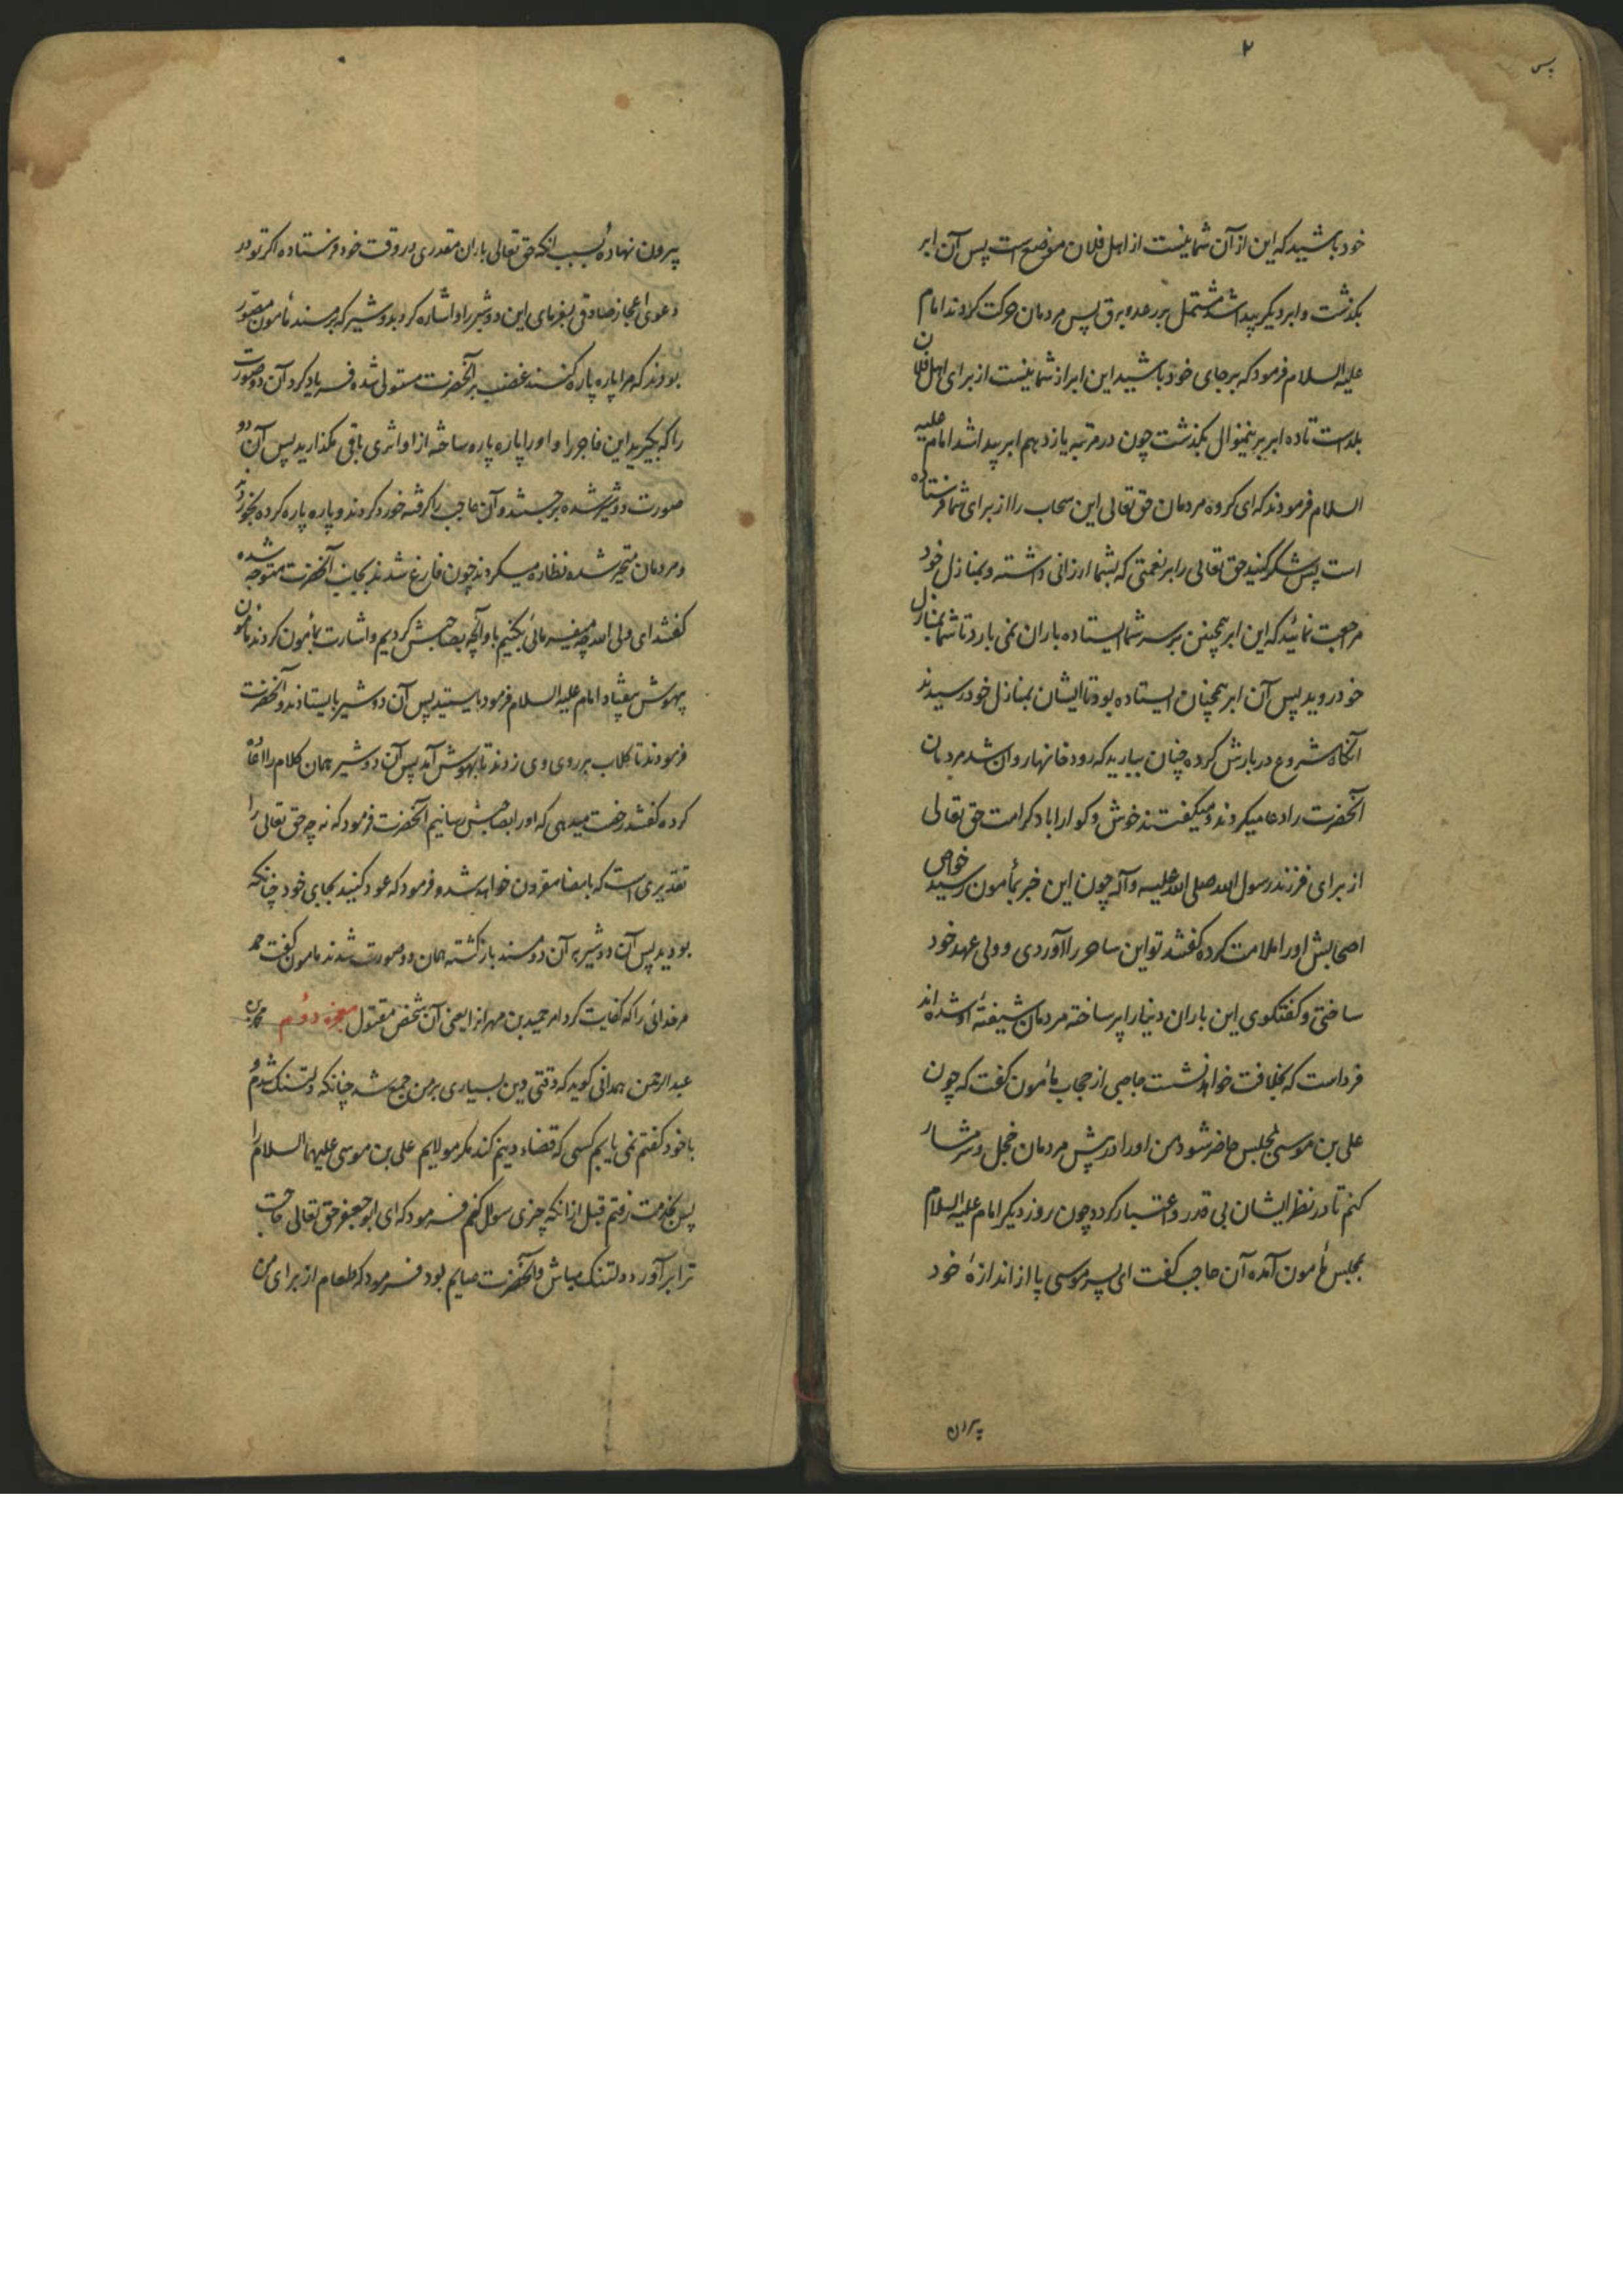 ۲
پس
خود باشید که این از آن شما نیست از اهل فلان موضع است پس آن ابر
بکذشت و ابر دیکر پیدا شد مشتمل بر رعد و برق پس مردمان حرکت کردند امام
علیه السلام فرمود که بر جای خود باشید این ابر از شما نیست از برای اهل فلان
بلد است تا ده ابر برینمنوال بکذشت چون در مرتبه یازدهم ابر پیدا شد امام علیه
السلام فرمودند که ای کروه مردمان حق تعالی این سحاب را از برای شما فرستاده
است پس شکر کنید حق تعالی را بر نعمتی که بشما ارزانی داشته و بمنازل خود
مراجعت نمائید که این ابر همچنین بر سر شما ایستاده باران نمی بارد تا شما بمنازل
خود روید پس آن ابر همچنان ایستاده بود تا ایشان بمنازل خود رسیدند
آنکاه شروع در بارش کرده چنان ببارید که رودخانها روان شد مردمان
آنحضرت را دعا میکردند و میکفتند خوش و کوارا باد کرامت حق تعالی
از برای فرزند رسول الله صلی الله علیه و آله چون این خبر بمأمون رسید خواص
اصحابش او را ملامت کرده کفتند تو این ساحر را آوردی و ولی عهد خود
ساختی و کفتکوی این باران دنیا را پر ساخته مردمان شیفتهٔ او شده اند
فرداست که بخلافت خواهد نشست حاجبی از حجاب مأمون کفت که چون
علی بن موسی بمجلس حاضر شود من او را در پیش مردمان خجل و شرمسار
کنم تا در نظر ایشان بی قدر و اعتبار کردد چون روز دیکر امام علیه السلام
بمجلس مأمون آمده آن حاجب کفت ای پسر موسی پا از اندازهٔ خود
پیرون
پیرون نهادهٔ بسبب انکه حق تعالی باران مقدری در وقت خود فرستاده اکر تو در
دعوی اعجاز صادقی بفرمای این دو شیر را و اشاره کرد بدو شیر که بر مسند مأمون مصور
بودند که مرا پاره پاره کنند غضب بر آنحضرت مستولی شده فریاد کرد آن دو صورت
را که بکیرید این فاجر را و او را پاره پاره ساخته از او اثری باقی مکذارید پس آن دو
صورت دو شیر شده برجستند و آن حاجب را کرفته خورد کردند و پاره پاره کرده بخوردند
و مردمان متحیر شده نظاره میکردند چون فارغ شدند بجانب آنحضرت متوجه شده
کفتند ای ولی الله چه میفرمائی بکنیم با و آنچه بصاحبش کردیم و اشارت بمأمون کردند مأمون
بیهوش بیفتاد امام علیه السلام فرمود بایستید پس آن دو شیر بایستادند و آنحضرت
فرمودند تا کلاب بر روی وی زدند تا بهوش آمد پس آن دو شیر همان کلام را اعاده
کرده کفتند رخصت میدهی که او را بصاحبش رسانیم آنحضرت فرمود که نه چه حق تعالی را
تقدیری است که بامضا مقرون خواهد شد و فرمود که عود کنید بجای خود چنانکه
بودید پس آن دو شیر بر آن دو مسند بازکشته همان دو صورت شدند مامون کفت حمد
مر خدائی را که کفایت کرد امر حمید بن مهران را یعنی آن شخص مقتول معجزه دوم محمد بن
عبد الرحمن همدانی کوید که وقتی دین بسیاری بر من جمع شد چنانکه دلتنک شدم و
با خود کفتم نمی یابم کسی که قضاء دینم کند مکر مولایم علی بن موسی علیهما السلام را
پس بخدمت رفتم قبل از انکه چیزی سوال کنم فرمود که ای ابو جعفر حق تعالی حاجت
ترا برآورد دلتنک مباش و آنحضرت صایم بود فرمود که طعام از برای من